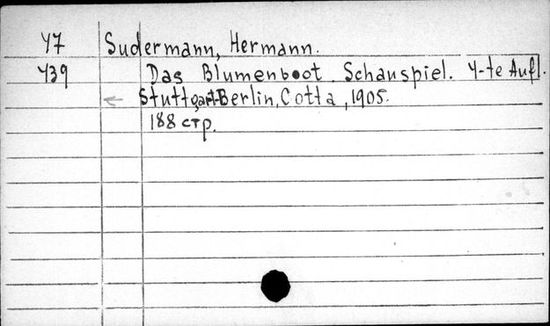 У7 Sudermann, Hermann.
У39 Das Blumenboot. Schauspiel. 4-te Aufl.
Stuttgart-Berlin, Cotta, 1905.
188 стр.